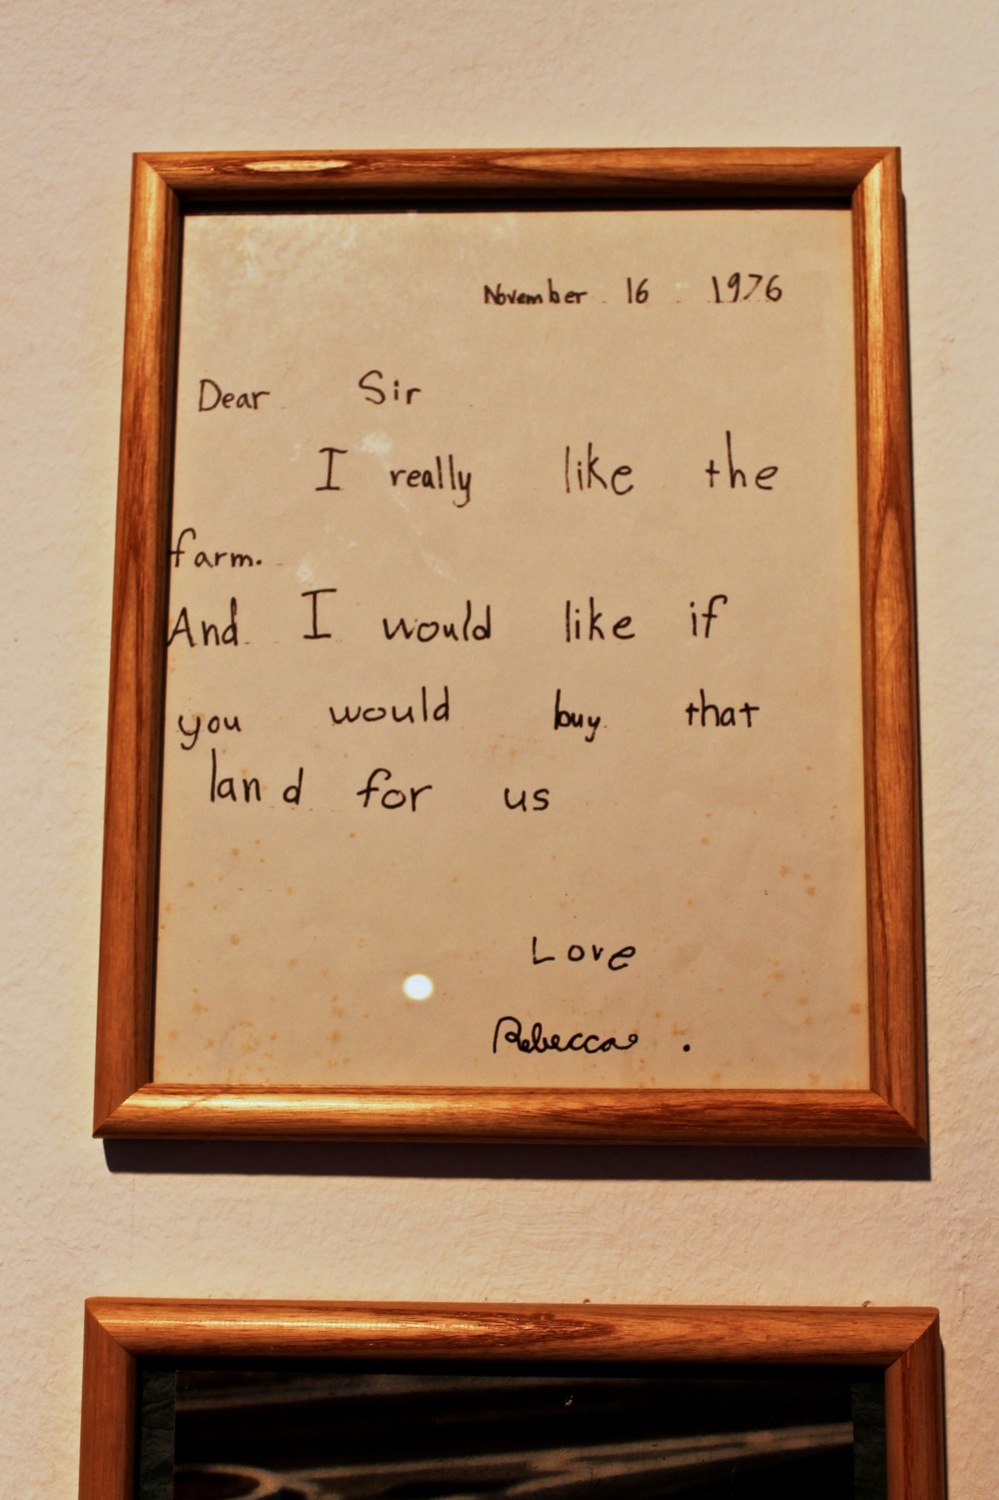 November 16 1976
Dear Sir
I really like the
farm.
And I would like if
you would buy that
land for us
Love
Rebecca.